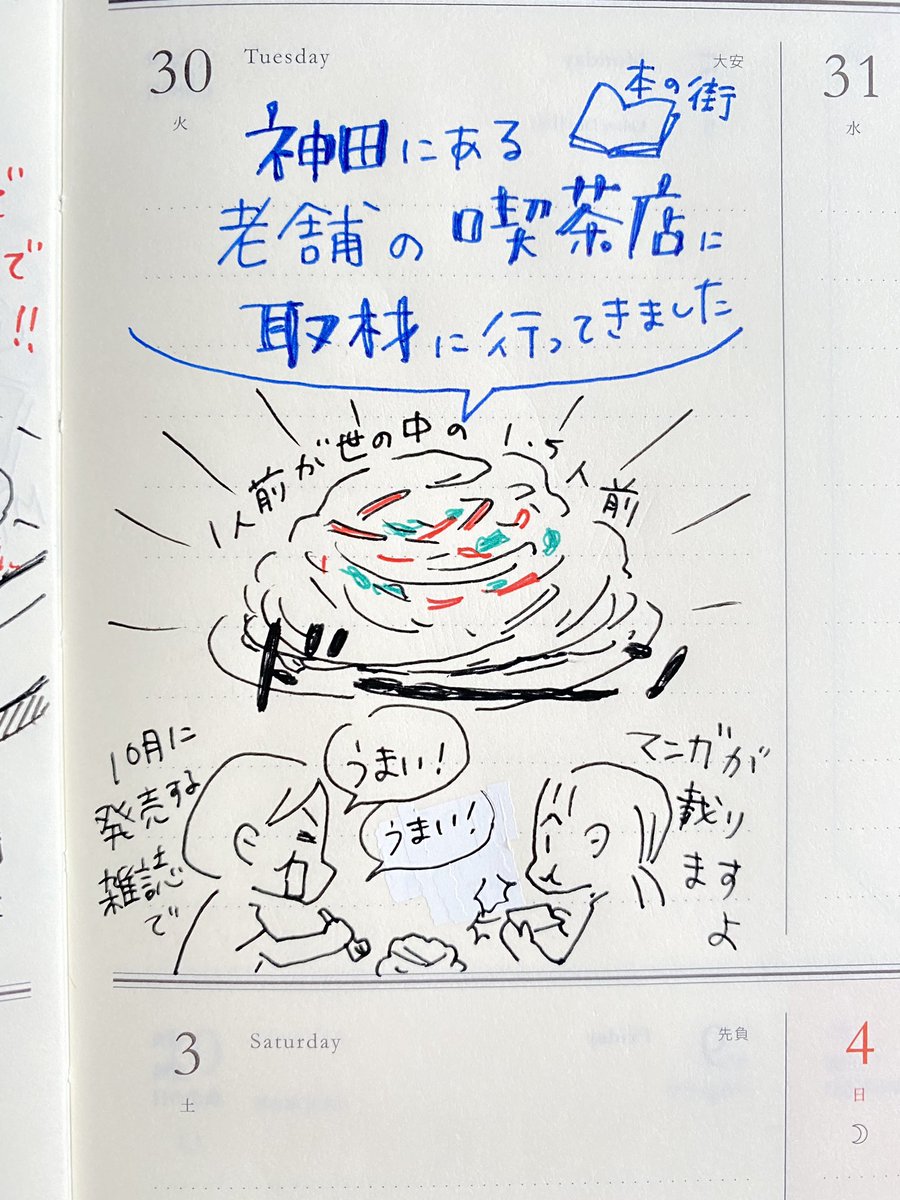 30
Tuesday
大安
火
31
水
本の街
神田にある
老舗の喫茶店に
取材に行ってきました
1人前が世の中の1.5人前
ドン
10月に
発売する
雑誌で
うまい!
うまい!
マンガが
載り
ますよ
で
!!
3
Saturday
先負
土
4
日